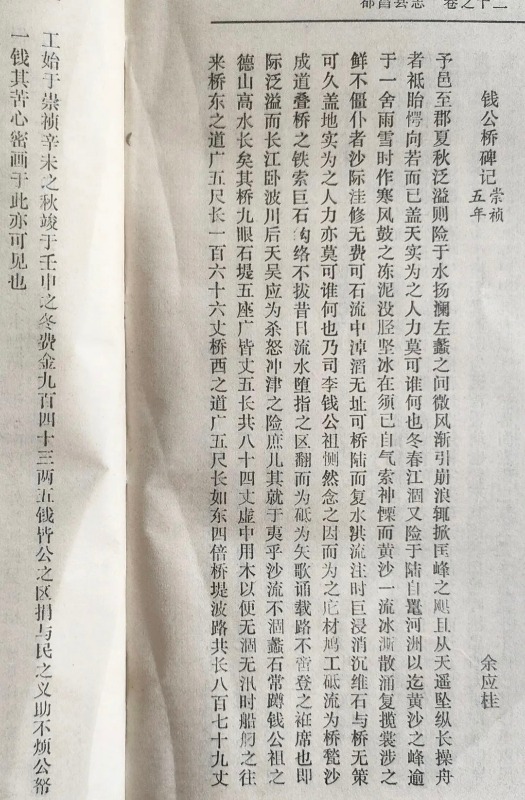 都昌县志 卷之十二
钱公桥碑记 崇祯五年 余应桂
予邑至郡夏秋泛溢则险于水扬澜左蠡之间微风渐引崩浪辄掀匡峰之飓且从天遥坠纵长操舟
者祗眙愕向若而已盖天实为之人力莫可谁何也冬春江涸又险于陆自罿河洲以迄黄沙之峰逾
于一舍雨雪时作寒风鼓之冻泥没胫坚冰在须已自气索神慄而黄沙一流冰澌散涌复揽裳涉之
鲜不僵仆者沙际洼修无费可石流中淖滔无址可桥陆而复水洪流注时巨浸消沉维石与桥无策
可久盖地实为之人力亦莫可谁何也乃司李钱公祖恻然念之因而为之庀材鸠工砥流为桥甃沙
成道叠桥之铁索巨石沟络不拔昔日流水堕指之区翻而为砥为矢歌诵载路不啻登之袵席也即
际泛溢而长江卧波川后天吴应为杀怒冲津之险庶几其就于夷乎沙流不涸蠡石常蹲钱公祖之
德山高水长矣其桥九眼石堤五座广皆丈五长共八十四丈虚中用木以便无涸无汛时船舸之往
来桥东之道广五尺长一百六十六丈桥西之道广五尺长如东四倍桥堤波路共长八百七十九丈
工始于崇祯辛未之秋竣于壬申之冬费金九百四十三两五钱皆公之区捐与民之义助不烦公帑
一钱其苦心密画于此亦可见也